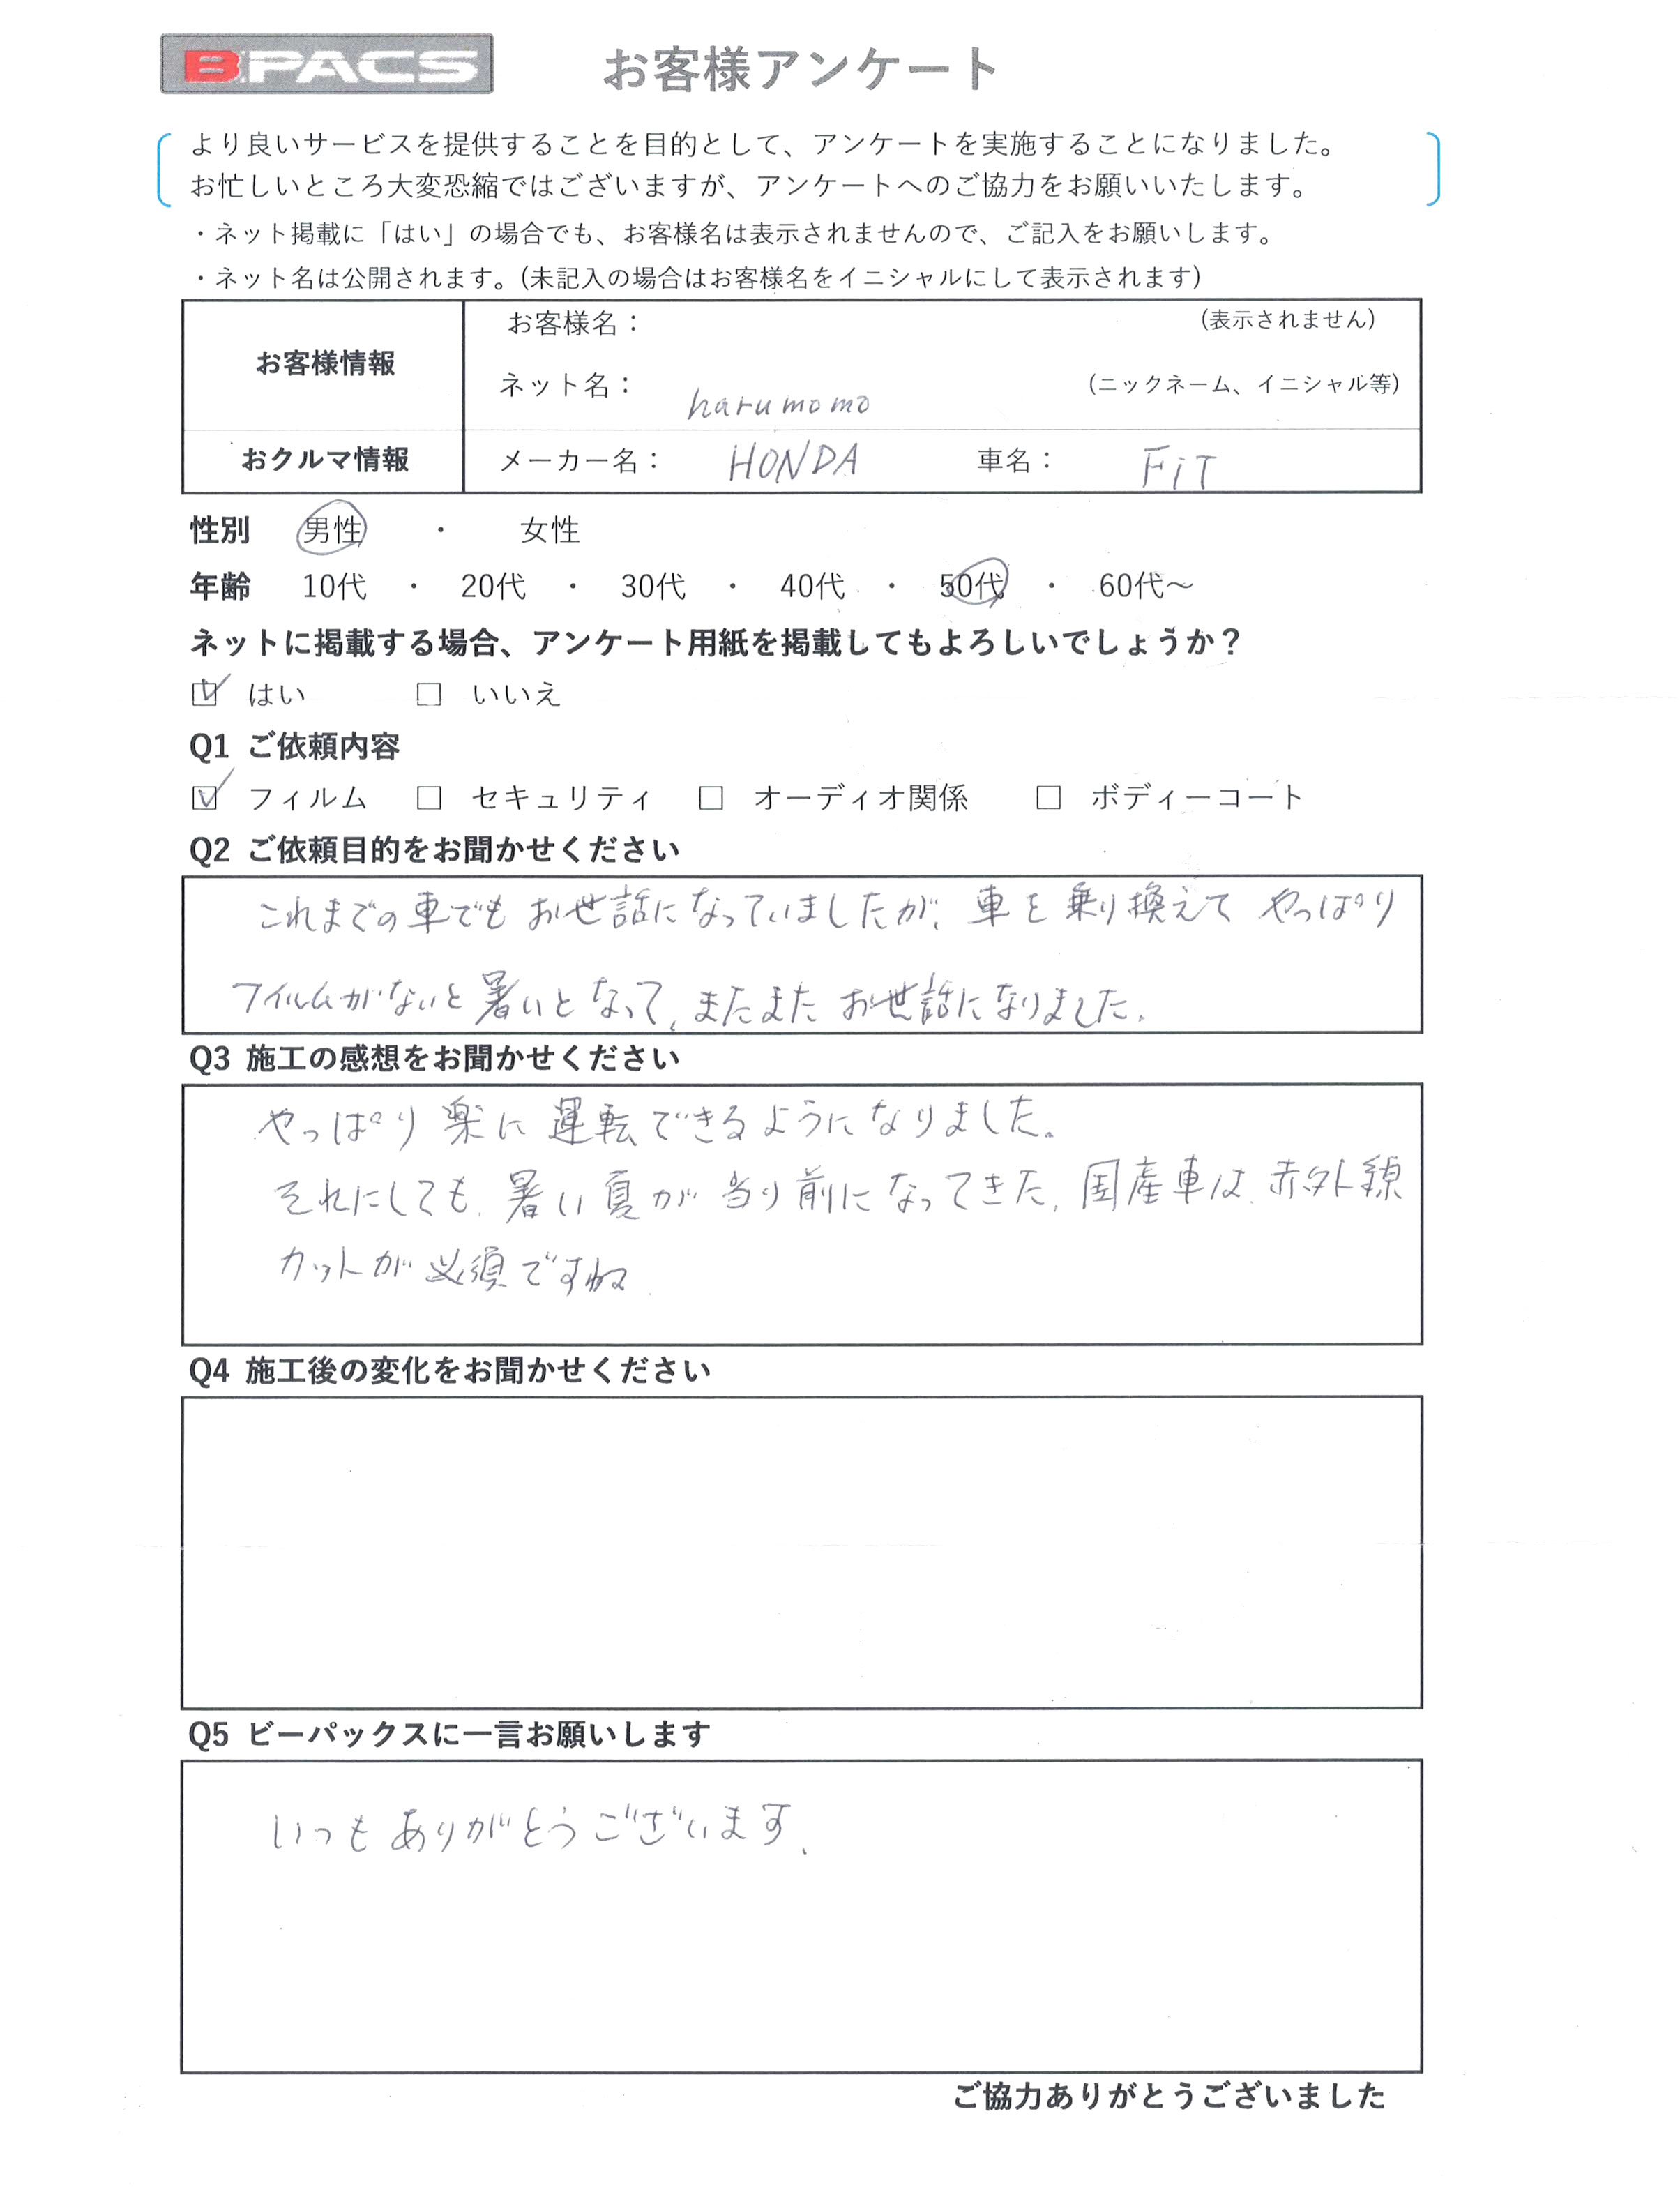 B-PACS お客様アンケート
より良いサービスを提供することを目的として、アンケートを実施することになりました。
お忙しいところ大変恐縮ではございますが、アンケートへのご協力をお願いいたします。
・ネット掲載に「はい」の場合でも、お客様名は表示されませんので、ご記入をお願いします。
・ネット名は公開されます。(未記入の場合はお客様名をイニシャルにして表示されます)
お客様情報 お客様名： (表示されません)
ネット名： harumomo (ニックネーム、イニシャル等)
おクルマ情報 メーカー名： HONDA 車名： FiT
性別 男性 ・ 女性
年齢 10代 ・ 20代 ・ 30代 ・ 40代 ・ 50代 ・ 60代～
ネットに掲載する場合、アンケート用紙を掲載してもよろしいでしょうか？
☑ はい □ いいえ
Q1 ご依頼内容
☑ フィルム □ セキュリティ □ オーディオ関係 □ ボディーコート
Q2 ご依頼目的をお聞かせください
これまでの車でもお世話になっていましたが、車を乗り換えて やっぱり
フィルムがないと暑いとなって、またまた お世話になりました。
Q3 施工の感想をお聞かせください
やっぱり 楽に 運転できるようになりました。
それにしても、暑い夏が当り前になってきた、国産車は、赤外線
カットが必須ですね
Q4 施工後の変化をお聞かせください
Q5 ビーパックスに一言お願いします
いつもありがとうございます。
ご協力ありがとうございました